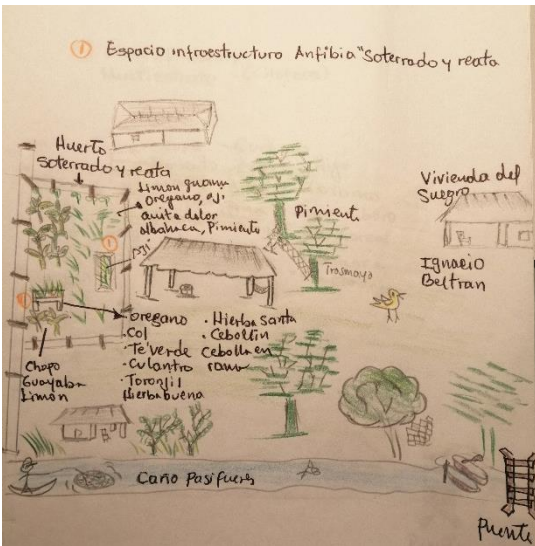 ① Espacio infraestructura Anfibia "Soterrado y reata
Huerto
soterrado y reata
Limon guama
Oregano, aji
quita dolor
albahaca, Pimiento
①
Aji
Pimiento
Trasmayo
Vivienda del
Suegro
Ignacio
Beltran
oregano
Col
Te verde
Culantro
Toronjil
Hierbabuena
Hierba santa
Cebollin
Cebolla en
rama
Chopo
Guayaba
Limón
Caño Pasifueres
Puente